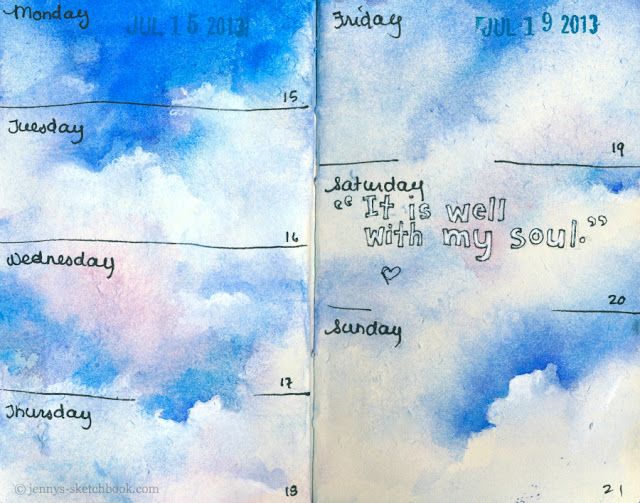 Monday
JUL 15 2013
15
Tuesday
16
Wednesday
17
Thursday
18
© jennys-sketchbook.com
Friday
JUL 19 2013
19
Saturday
“It is well
with my soul.”
20
Sunday
21